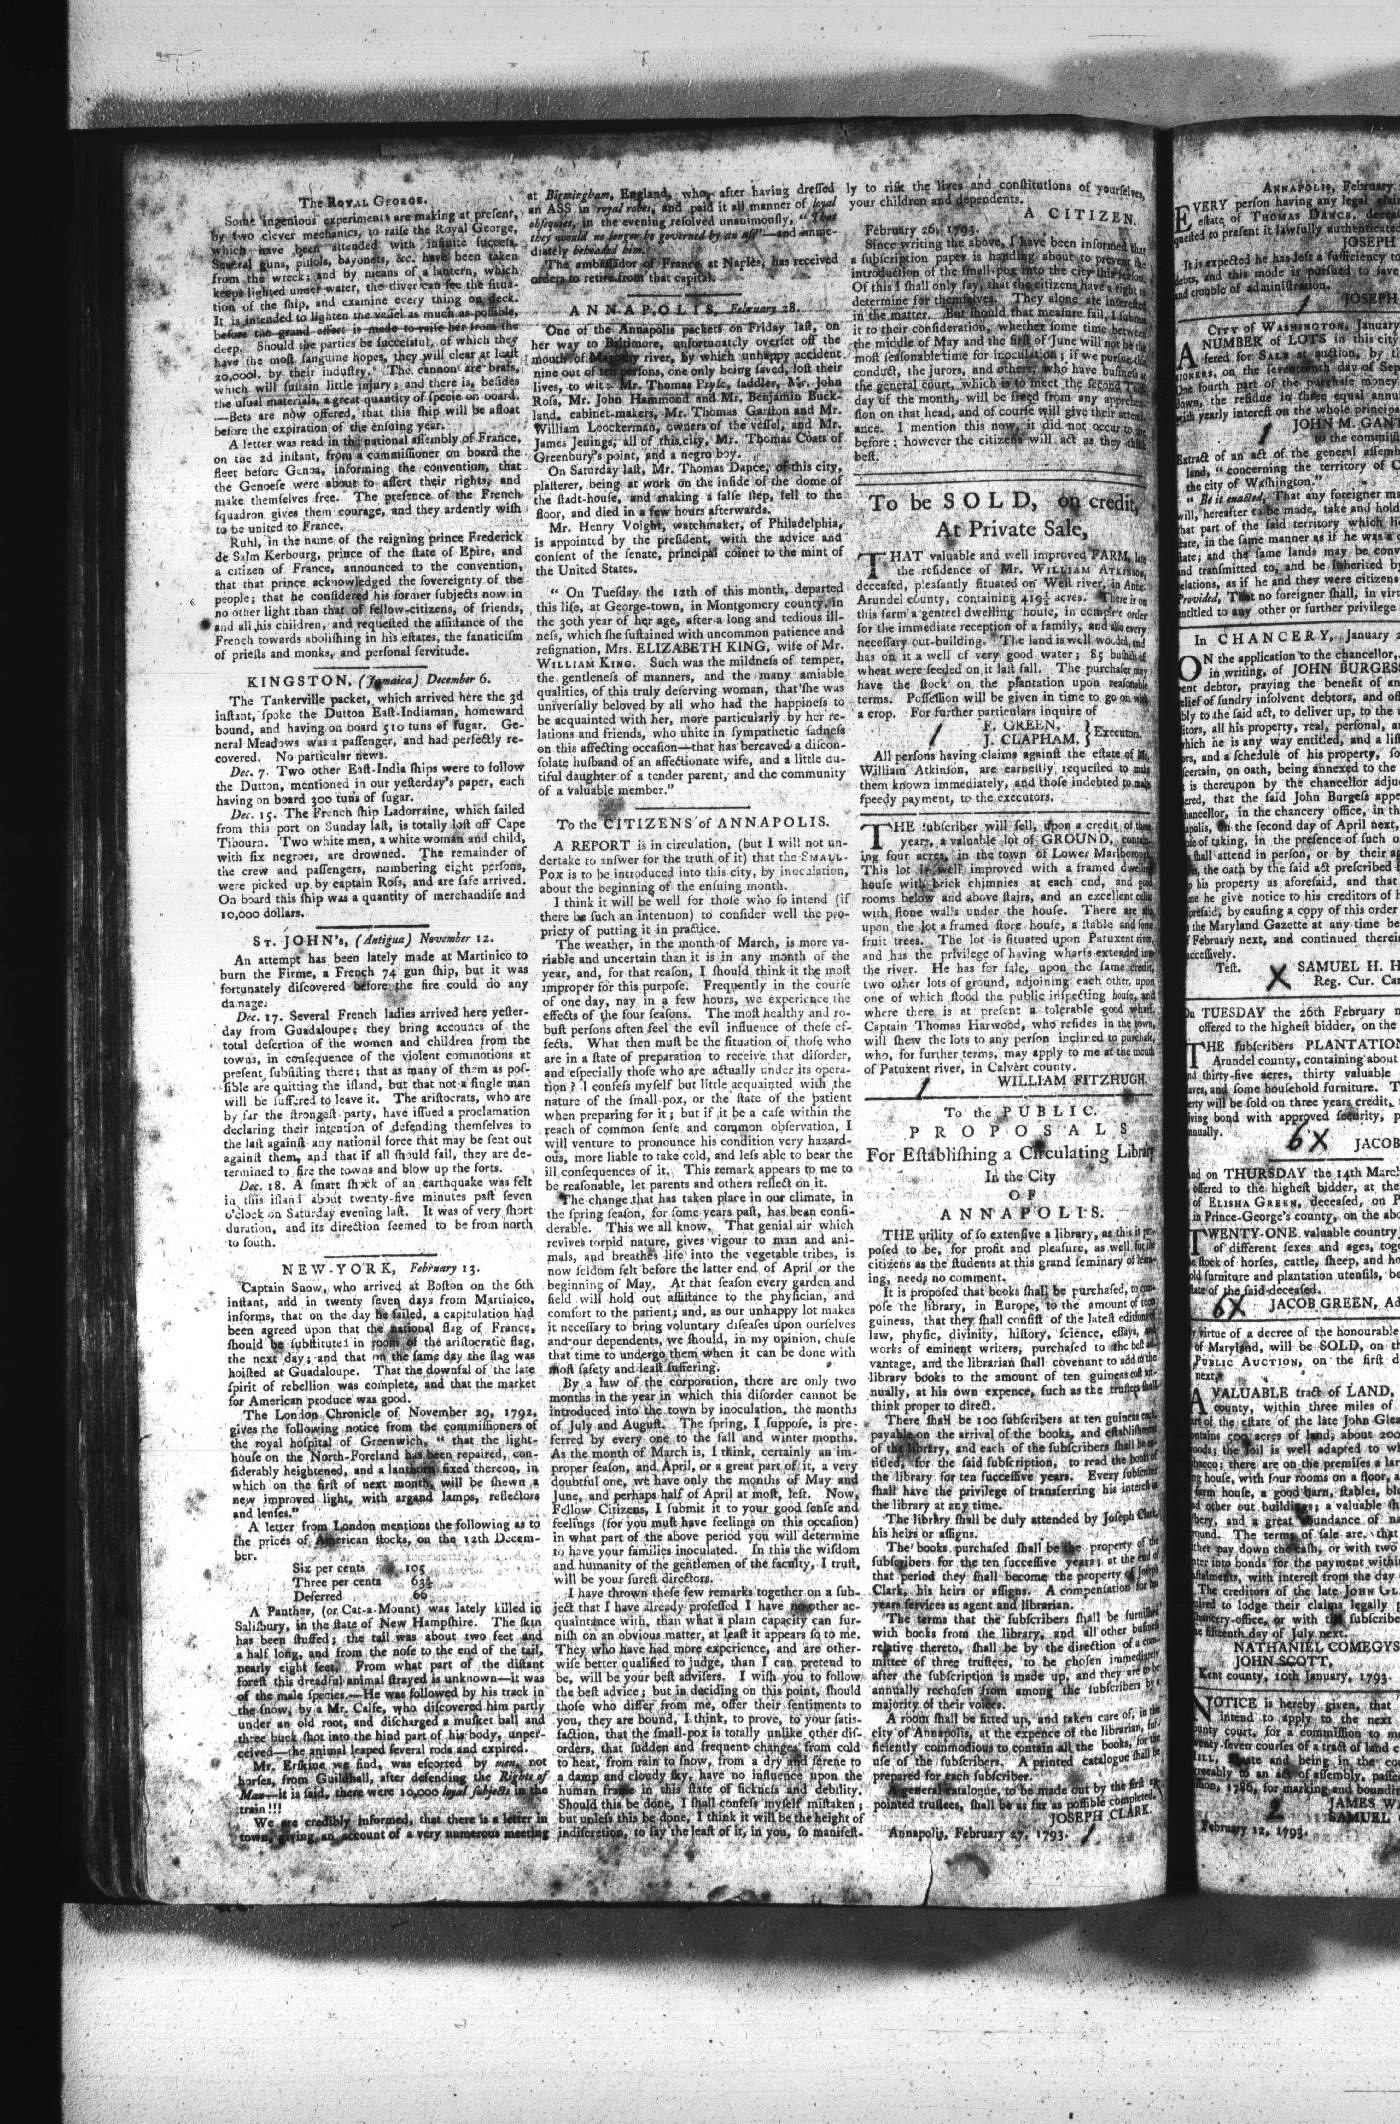 The ROYAL GEORGE.
Some ingenious experiments are making at present,
by two clever mechanics, to raise the Royal George,
which have been attended with infinite success.
Several guns, pistols, bayonets, &c. have been taken
from the wreck; and by means of a lantern, which
keeps lighted under water, the diver can see the situa-
tion of the ship, and examine every thing on deck.
It is intended to lighten the vessel as much as possible,
before the grand effort is made to raise her from the
deep. Should the parties be successful, of which they
have the most sanguine hopes, they will clear at least
20,000l. by their industry. The cannon are brass,
which will sustain little injury; and there is, besides
the usual materials, a great quantity of specie on board.
—Bets are now offered, that this ship will be afloat
before the expiration of the ensuing year.
A letter was read in the national assembly of France,
on the 2d instant, from a commissioner on board the
fleet before Genoa, informing the convention, that
the Genoese were about to assert their rights, and
make themselves free. The presence of the French
squadron gives them courage, and they ardently wish
to be united to France.
Ruhl, in the name of the reigning prince Frederick
de Salm Kerbourg, prince of the state of Epire, and
a citizen of France, announced to the convention,
that that prince acknowledged the sovereignty of the
people; that he considered his former subjects now in
no other light than that of fellow-citizens, of friends,
and all his children, and requested the assistance of the
French towards abolishing in his estates, the fanaticism
of priests and monks, and personal servitude.
KINGSTON, (Jamaica) December 6.
The Tankerville packet, which arrived here the 3d
instant, spoke the Dutton East-Indiaman, homeward
bound, and having on board 510 tuns of sugar. Ge-
neral Meadows was a passenger, and had perfectly re-
covered. No particular news.
Dec. 7. Two other East-India ships were to follow
the Dutton, mentioned in our yesterday's paper, each
having on board 300 tuns of sugar.
Dec. 15. The French ship Ladorraine, which sailed
from this port on Sunday last, is totally lost off Cape
Tibourn. Two white men, a white woman and child,
with six negroes, are drowned. The remainder of
the crew and passengers, numbering eight persons,
were picked up by captain Ross, and are safe arrived.
On board this ship was a quantity of merchandise and
10,000 dollars.
ST. JOHN's, (Antigua) November 12.
An attempt has been lately made at Martinico to
burn the Firme, a French 74 gun ship, but it was
fortunately discovered before the fire could do any
damage.
Dec. 17. Several French ladies arrived here yester-
day from Guadaloupe; they bring accounts of the
total desertion of the women and children from the
towns, in consequence of the violent commotions at
present subsisting there; that as many of them as pos-
sible are quitting the island, but that not a single man
will be suffered to leave it. The aristocrats, who are
by far the strongest party, have issued a proclamation
declaring their intention of defending themselves to
the last against any national force that may be sent out
against them, and that if all should fail, they are de-
termined to fire the towns and blow up the forts.
Dec. 18. A smart shock of an earthquake was felt
in this island about twenty-five minutes past seven
o'clock on Saturday evening last. It was of very short
duration, and its direction seemed to be from north
to south.
NEW-YORK, February 13.
Captain Snow, who arrived at Boston on the 6th
instant, and in twenty seven days from Martinico,
informs, that on the day he sailed, a capitulation had
been agreed upon that the national flag of France,
should be substituted in room of the aristocratic flag,
the next day; and that on the same day the flag was
hoisted at Guadaloupe. That the downfal of the late
spirit of rebellion was complete, and that the market
for American produce was good.
The London Chronicle of November 29, 1792,
gives the following notice from the commissioners of
the royal hospital of Greenwich, "that the light-
house on the North-Foreland has been repaired, con-
siderably heightened, and a lanthorn fixed thereon, in
which on the first of next month, will be shewn a
new improved light, with argand lamps, reflectors
and lenses."
A letter from London mentions the following as to
the prices of American stocks, on the 12th Decem-
ber.
Six per cents 105
Three per cents 63½
Deferred 66
A Panther, (or Cat-a-Mount) was lately killed in
Salisbury, in the state of New Hampshire. The skin
has been stuffed; the tail was about two feet and
a half long, and from the nose to the end of the tail,
nearly eight feet. From what part of the distant
forest this dreadful animal strayed is unknown—it was
of the male species.—He was followed by his track in
the snow, by a Mr. Calfe, who discovered him partly
under an old root, and discharged a musket ball and
three buck shot into the hind part of his body, unper-
ceived—the animal leaped several rods and expired.
Mr. Erskine we find, was escorted by men, not
horses, from Guildhall, after defending the Rights of
Man—it is said, there were 10,000 loyal subjects in the
train!!!
We are credibly informed, that there is a letter in
town, giving an account of a very numerous meeting
at Birmingham, England, who, after having dressed
an ASS in royal robes, and paid it all manner of loyal
obsequies, in the evening resolved unanimously, "That
they would no longer be governed by an ass"—and imme-
diately beheaded him.
The ambassador of France, at Naples, has received
orders to retire from that capital.
ANNAPOLIS, February 28.
One of the Annapolis packets on Friday last, on
her way to Baltimore, unfortunately overset off the
mouth of Magothy river, by which unhappy accident
nine out of ten persons, one only being saved, lost their
lives, to wit: Mr. Thomas Pryse, saddler, Mr. John
Ross, Mr. John Hammond and Mr. Benjamin Buck-
land, cabinet-makers, Mr. Thomas Garston and Mr.
William Loockerman, owners of the vessel, and Mr.
James Jenings, all of this city, Mr. Thomas Coats of
Greenbury's point, and a negro boy.
On Saturday last, Mr. Thomas Dance, of this city,
plasterer, being at work on the inside of the dome of
the stadt-house, and making a false step, fell to the
floor, and died in a few hours afterwards.
Mr. Henry Voight, watchmaker, of Philadelphia,
is appointed by the president, with the advice and
consent of the senate, principal coiner to the mint of
the United States.
"On Tuesday the 12th of this month, departed
this life, at George-town, in Montgomery county, in
the 30th year of her age, after a long and tedious ill-
ness, which she sustained with uncommon patience and
resignation, Mrs. ELIZABETH KING, wife of Mr.
WILLIAM KING. Such was the mildness of temper,
the gentleness of manners, and the many amiable
qualities, of this truly deserving woman, that she was
universally beloved by all who had the happiness to
be acquainted with her, more particularly by her re-
lations and friends, who unite in sympathetic sadness
on this affecting occasion—that has bereaved a discon-
solate husband of an affectionate wife, and a little du-
tiful daughter of a tender parent, and the community
of a valuable member."
To the CITIZENS of ANNAPOLIS.
A REPORT is in circulation, (but I will not un-
dertake to answer for the truth of it) that the SMALL-
POX is to be introduced into this city, by inoculation,
about the beginning of the ensuing month.
I think it will be well for those who so intend (if
there be such an intention) to consider well the pro-
priety of putting it in practice.
The weather, in the month of March, is more va-
riable and uncertain than it is in any month of the
year, and, for that reason, I should think it the most
improper for this purpose. Frequently in the course
of one day, nay in a few hours, we experience the
effects of the four seasons. The most healthy and ro-
bust persons often feel the evil influence of these ef-
fects. What then must be the situation of those who
are in a state of preparation to receive that disorder,
and especially those who are actually under its opera-
tion? I confess myself but little acquainted with the
nature of the small-pox, or the state of the patient
when preparing for it; but if it be a case within the
reach of common sense and common observation, I
will venture to pronounce his condition very hazard-
ous, more liable to take cold, and less able to bear the
ill consequences of it. This remark appears to me to
be reasonable, let parents and others reflect on it.
The change that has taken place in our climate, in
the spring season, for some years past, has been consi-
derable. This we all know. That genial air which
revives torpid nature, gives vigour to man and ani-
mals, and breathes life into the vegetable tribes, is
now seldom felt before the latter end of April or the
beginning of May. At that season every garden and
field will hold out assistance to the physician, and
comfort to the patient; and, as our unhappy lot makes
it necessary to bring voluntary diseases upon ourselves
and our dependents, we should, in my opinion, chuse
that time to undergo them when it can be done with
most safety and least suffering.
By a law of the corporation, there are only two
months in the year in which this disorder cannot be
introduced into the town by inoculation, the months
of July and August. The spring, I suppose, is pre-
ferred by every one to the fall and winter months.
As the month of March is, I think, certainly an im-
proper season, and April, or a great part of it, a very
doubtful one, we have only the months of May and
June, and perhaps half of April at most, left. Now,
Fellow Citizens, I submit it to your good sense and
feelings (for you must have feelings on this occasion)
in what part of the above period you will determine
to have your families inoculated. In this the wisdom
and humanity of the gentlemen of the faculty, I trust,
will be your surest directors.
I have thrown these few remarks together on a sub-
ject that I have already professed I have no other ac-
quaintance with, than what a plain capacity can fur-
nish on an obvious matter, at least it appears so to me.
They who have had more experience, and are other-
wise better qualified to judge, than I can pretend to
be, will be your best advisers. I wish you to follow
the best advice; but in deciding on this point, should
those who differ from me, offer their sentiments to
you, they are bound, I think, to prove, to your satis-
faction, that the small-pox is totally unlike other dis-
orders, that sudden and frequent changes from cold
to heat, from rain to snow, from a dry and serene to
a damp and cloudy sky, have no influence upon the
human frame in this state of sickness and debility.
Should this be done, I shall confess myself mistaken;
but unless this be done, I think it will be the height of
indiscretion, to say the least of it, in you, so manifest-
ly to risk the lives and constitutions of yourselves,
your children and dependents.
A CITIZEN.
February 26, 1793.
Since writing the above, I have been informed that
a subscription paper is handing about to prevent the
introduction of the small-pox into the city this season.
Of this I shall only say, that the citizens have a right to
determine for themselves. They alone are interested
in the matter. But should that measure fail, I submit
it to their consideration, whether some time between
the middle of May and the first of June will not be the
most seasonable time for inoculation; if we pursue this
conduct, the jurors, and others, who have business at
the general court, which is to meet the second Tues-
day of the month, will be freed from any apprehen-
sion on that head, and of course will give their attend-
ance. I mention this now, it did not occur to me
before; however the citizens will act as they think
best.
To be SOLD, on credit,
At Private Sale,
THAT valuable and well improved FARM, late
the residence of Mr. WILLIAM ATKINSON,
deceased, pleasantly situated on West river, in Anne-
Arundel county, containing 419½ acres. There is on
this farm a genteel dwelling house, in complete order
for the immediate reception of a family, and also every
necessary out-building. The land is well wooded, and
has on it a well of very good water; 85 bushels of
wheat were seeded on it last fall. The purchaser may
have the stock on the plantation upon reasonable
terms. Possession will be given in time to go on with
a crop. For further particulars inquire of
F. GREEN,
J. CLAPHAM, } Executors.
All persons having claims against the estate of Mr.
William Atkinson, are earnestly requested to make
them known immediately, and those indebted to make
speedy payment, to the executors.
THE subscriber will sell, upon a credit of three
years, a valuable lot of GROUND, contain-
ing four acres, in the town of Lower Marlborough.
This lot is well improved with a framed dwelling
house with brick chimnies at each end, and good
rooms below and above stairs, and an excellent cellar
with stone walls under the house. There are also
upon the lot a framed store house, a stable and some
fruit trees. The lot is situated upon Patuxent river,
and has the privilege of having wharfs extended into
the river. He has for sale, upon the same credit,
two other lots of ground, adjoining each other, upon
one of which stood the public inspecting house, and
where there is at present a tolerable good wharf.
Captain Thomas Harwood, who resides in the town,
will shew the lots to any person inclined to purchase,
who, for further terms, may apply to me at the mouth
of Patuxent river, in Calvert county.
WILLIAM FITZHUGH.
To the PUBLIC.
PROPOSALS
For Establishing a Circulating Library
In the City
OF
ANNAPOLIS.
THE utility of so extensive a library, as this is pro-
posed to be, for profit and pleasure, as well for the
citizens as the students at this grand seminary of learn-
ing, needs no comment.
It is proposed that books shall be purchased, to com-
pose the library, in Europe, to the amount of 1000
guineas, that they shall consist of the latest editions of
law, physic, divinity, history, science, essays, and
works of eminent writers, purchased to the best ad-
vantage, and the librarian shall covenant to add to the
library books to the amount of ten guineas cost an-
nually, at his own expence, such as the trustees shall
think proper to direct.
There shall be 100 subscribers at ten guineas each,
payable on the arrival of the books, and establishment
of the library, and each of the subscribers shall be en-
titled, for the said subscription, to read the books of
the library for ten successive years. Every subscriber
shall have the privilege of transferring his interest in
the library at any time.
The library shall be duly attended by Joseph Clark,
his heirs or assigns.
The books purchased shall be the property of the
subscribers for the ten successive years; at the end of
that period they shall become the property of Joseph
Clark, his heirs or assigns. A compensation for his
years services as agent and librarian.
The terms that the subscribers shall be furnished
with books from the library, and all other business
relative thereto, shall be by the direction of a com-
mittee of three trustees, to be chosen immediately
after the subscription is made up, and they are to be
annually rechosen from among the subscribers by a
majority of their voices.
A room shall be fitted up, and taken care of, in the
city of Annapolis, at the expence of the librarian, suf-
ficiently commodious to contain all the books, for the
use of the subscribers. A printed catalogue shall be
prepared for each subscriber.
A general catalogue, to be made out by the first ap-
pointed trustees, shall be as far as possible completed.
JOSEPH CLARK.
Annapolis, February 27, 1793.
ANNAPOLIS, February
EVERY person having any legal
estate of THOMAS DANCE,
quested to present it lawfully authenticated
JOSEPH
It is expected he has left a sufficiency to
debts, and this mode is pursued to save
and trouble of administration.
JOSEPH
CITY of WASHINGTON, January
A NUMBER of LOTS in this city
fered for SALE at auction, by
on the seventeenth day of Sep
One fourth part of the purchase money
down, the residue in three equal annu
with yearly interest on the whole principal
JOHN M. GANT
to the commis
Extract of an act of the general assemb
land, "concerning the territory of C
the city of Washington."
"Be it enacted, That any foreigner m
will, hereafter to be made, take and hold
that part of the said territory which li
state, in the same manner as if he was a c
state; and the same lands may be conv
and transmitted to, and be inherited by
relations, as if he and they were citizens
Provided, That no foreigner shall, in virt
entitled to any other or further privilege
In CHANCERY, January 2
ON the application to the chancellor,
in writing, of JOHN BURGESS
vent debtor, praying the benefit of an
relief of sundry insolvent debtors, and off
bly to the said act, to deliver up, to the u
ditors, all his property, real, personal,
which he is any way entitled, and a list
ors, and a schedule of his property, so
certain, on oath, being annexed to the
is thereupon by the chancellor adju
ered, that the said John Burgess appe
hancellor, in the chancery office, in th
apolis, on the second day of April next,
ple of taking, in the presence of such o
shall attend in person, or by their ag
the oath by the said act prescribed
p his property as aforesaid, and that
me he give notice to his creditors of h
foresaid, by causing a copy of this order
the Maryland Gazette at any time be
f February next, and continued therein
uccessively.
Test. SAMUEL H. H
X Reg. Cur. Can
On TUESDAY the 26th February
offered to the highest bidder, on the
THE subscribers PLANTATION
Arundel county, containing about
nd thirty-five acres, thirty valuable
aves, and some household furniture. T
erty will be sold on three years credit,
iving bond with approved security,
nnually.
6X JACOB
And on THURSDAY the 14th March
offered to the highest bidder, at the
of ELISHA GREEN, deceased, on
in Prince-George's county, on the abo
TWENTY-ONE valuable country
of different sexes and ages, toge
he stock of horses, cattle, sheep, and ho
old furniture and plantation utensils, be
state of the said deceased.
6X JACOB GREEN, Ad
By virtue of a decree of the honourable
of Maryland, will be SOLD, on th
PUBLIC AUCTION, on the first d
next,
A VALUABLE tract of LAND,
county, within three miles of
rt of the estate of the late John Glea
ontains 600 acres of land; about 200
oods; the soil is well adapted to wh
bacco; there are on the premises a lar
ng house, with four rooms on a floor, a
farm house, a good barn, stables, bla
nd other out buildings; a valuable fis
hery, and a great abundance of
round. The terms of sale are, that
ther pay down the cash, or with two
nter into bonds for the payment within
stalments, with interest from the day
The creditors of the late JOHN GL
uired to lodge their claims legally p
hancery-office, or with the subscriber
he fifteenth day of July next.
NATHANIEL COMEGYS
JOHN SCOTT,
Kent county, 10th January, 1793.
NOTICE is hereby given, that
intend to apply to the next
ounty court, for a commission to
wenty-seven courses of a tract of land c
state and being in the
greeably to an act of assembly, passe
ssion, 1786, for marking and bound
JAMES W
SAMUEL
February 12, 1793.